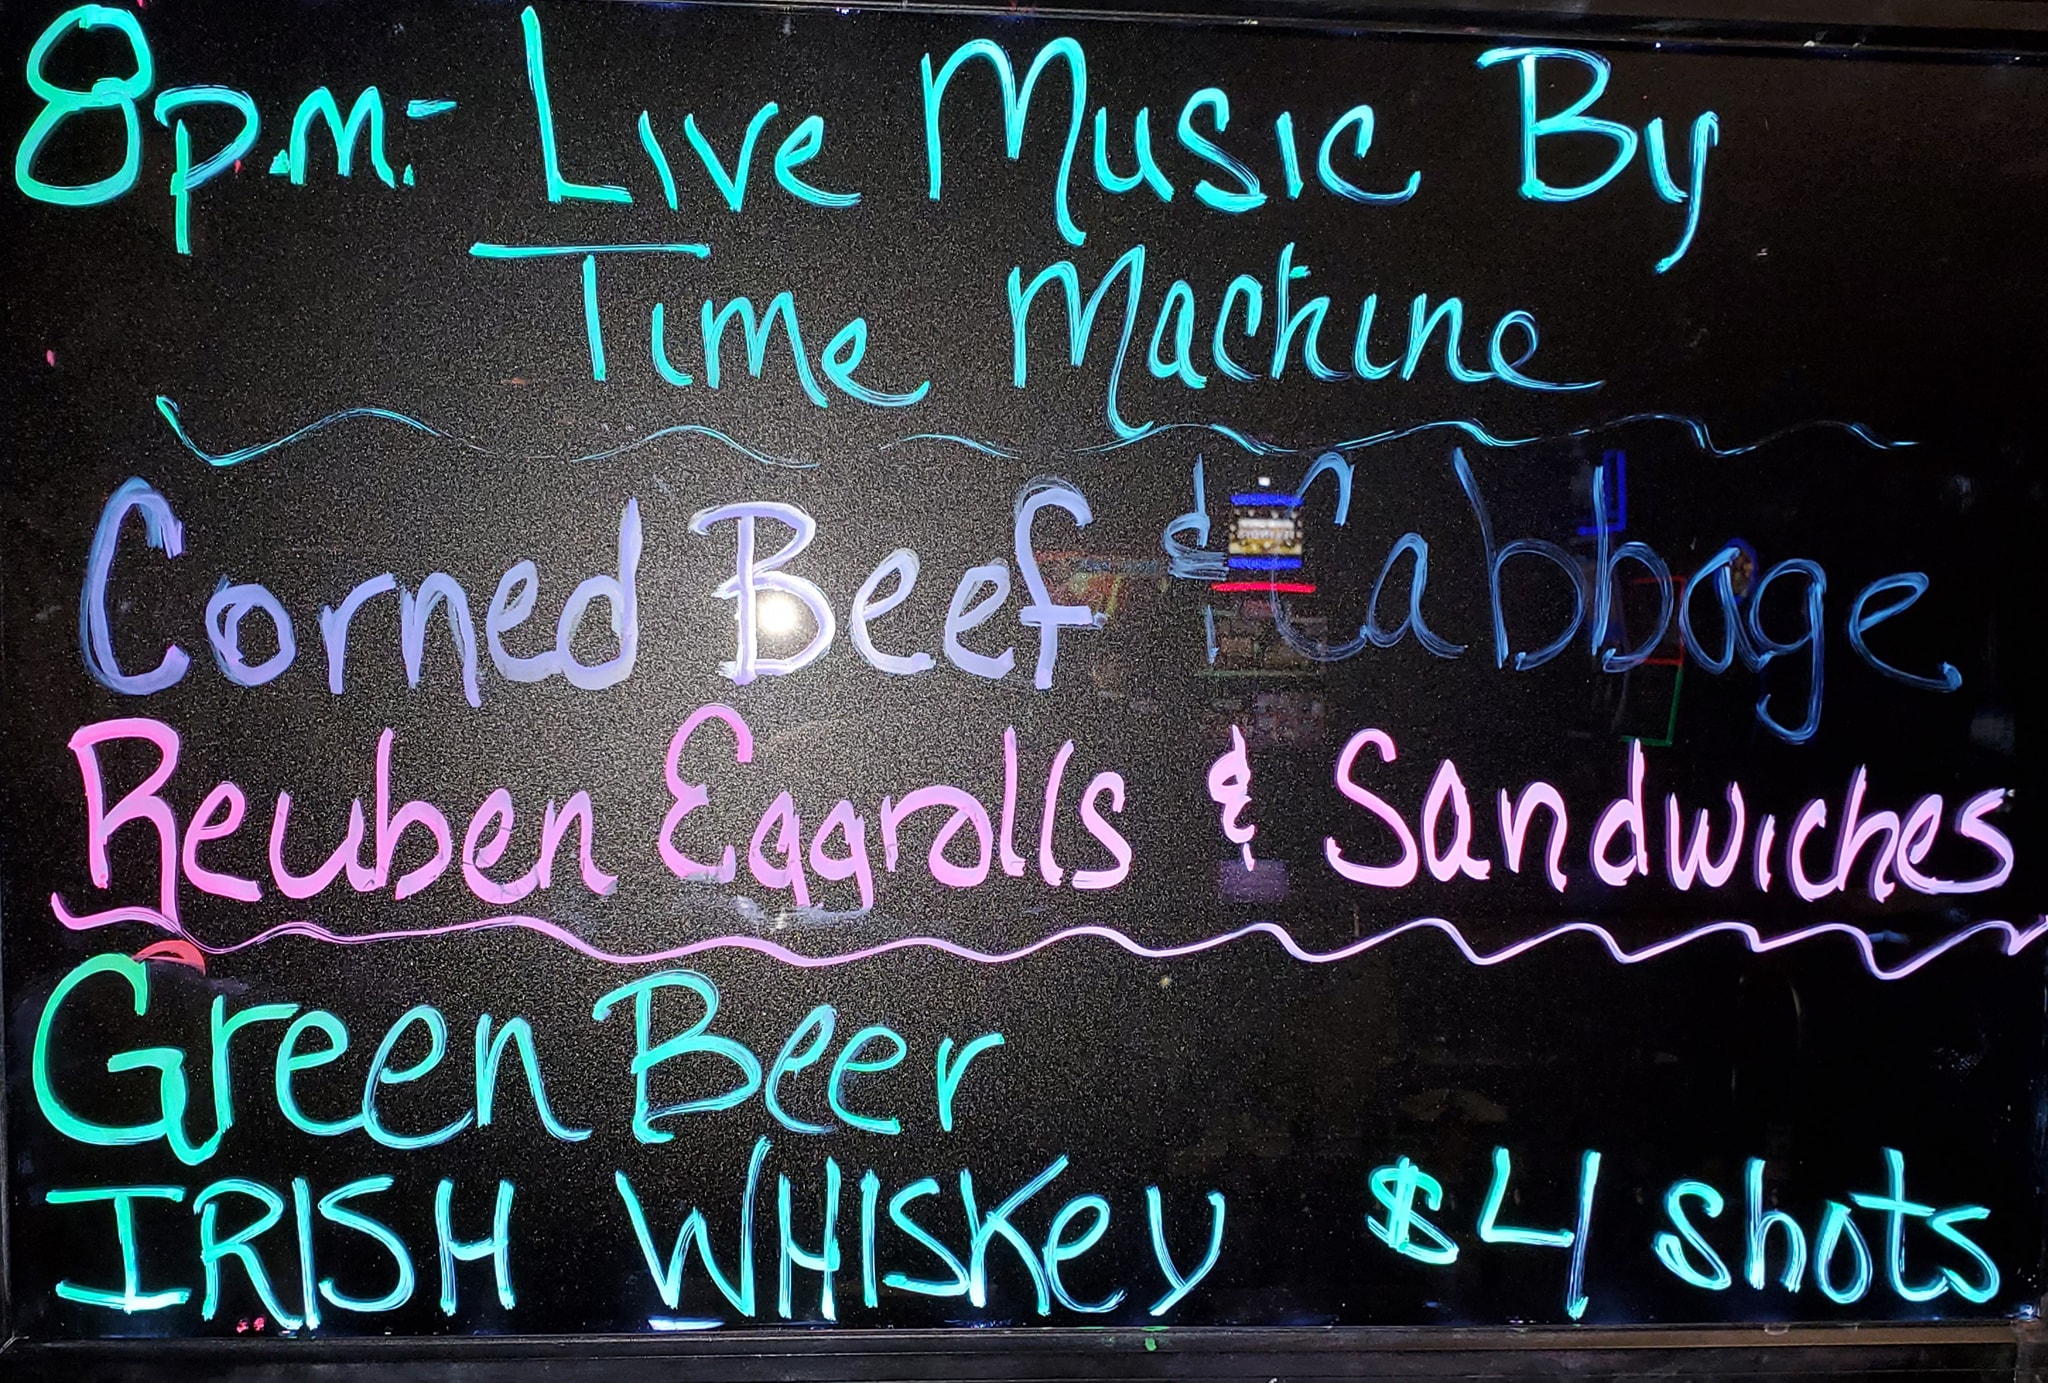 8p.m.- Live Music By
Time Machine
Corned Beef & Cabbage
Reuben Eggrolls & Sandwiches
Green Beer
IRISH WHISKEY $4 shots